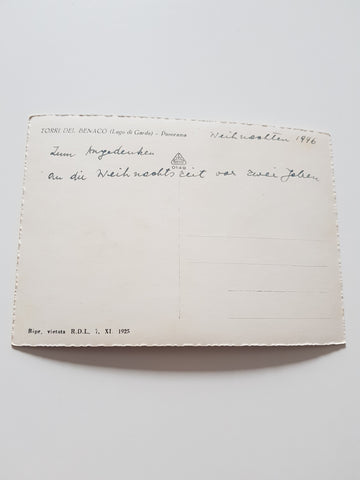 TORRI DEL BENACO (Lago di Garda) - Panorama
Weihnachten 1946
Zum Angedenken
an die Weihnachtszeit vor zwei Jahren
Ripr. vietata R.D.L. 7, XI. 1925